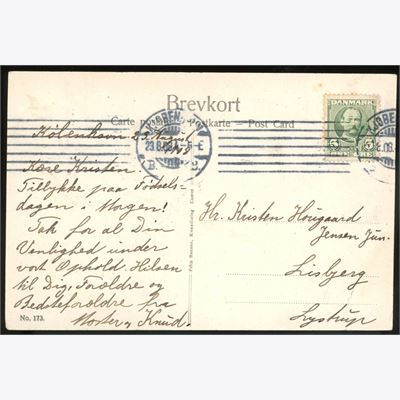 Brevkort
Carte Postkarte – Post Card
DANMARK
5 5
KJØBENH
23.8.08 4-5 E
B.
København 23 August
1908
Kære Kristen!
Tillykke paa Fødsels-
dagen i Morgen!
Tak for al Din
Venlighed under
vort Ophold. Hilsen
til Dig, Forældre og
Bedsteforældre fra
Moster og Knud.
Hr. Kristen Hougaard
Jensen Jun.
Lisbjerg
Lystrup
No. 173.
Fritz Benzen, Kunstforlag